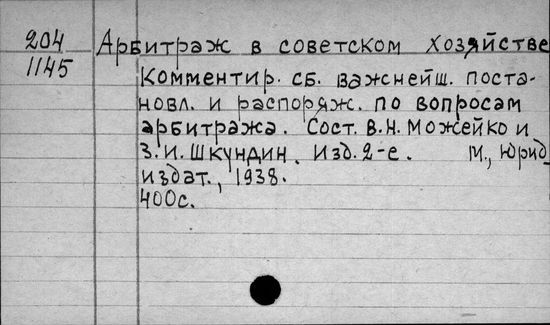 204 Арбитраж в советском хозяйстве
1145 Комментир. сб. важнейш. поста-
новл. и распоряж. по вопросам
арбитража. Сост. В.Н. Можейко и
З.И. Шкундин. Изд. 2-е. М., Юрид.
издат., 1938.
400с.